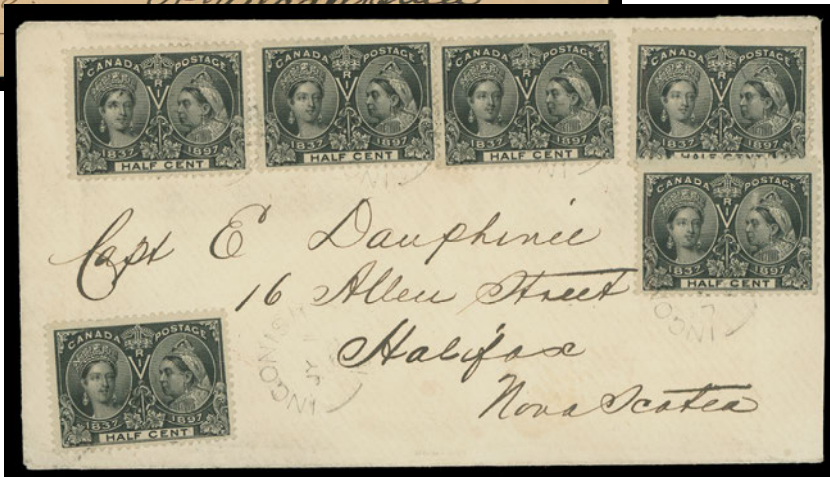 CANADA POSTAGE
V R
1837 1897
HALF CENT
CANADA POSTAGE
V R
1837 1897
HALF CENT
CANADA POSTAGE
V R
1837 1897
HALF CENT
CANADA POSTAGE
V R
1837 1897
HALF CENT
CANADA POSTAGE
V R
1837 1897
HALF CENT
Capt E Dauphinee
16 Allen Street
Halifax
Nova Scotea
INGONISH
CANADA POSTAGE
V R
1837 1897
HALF CENT